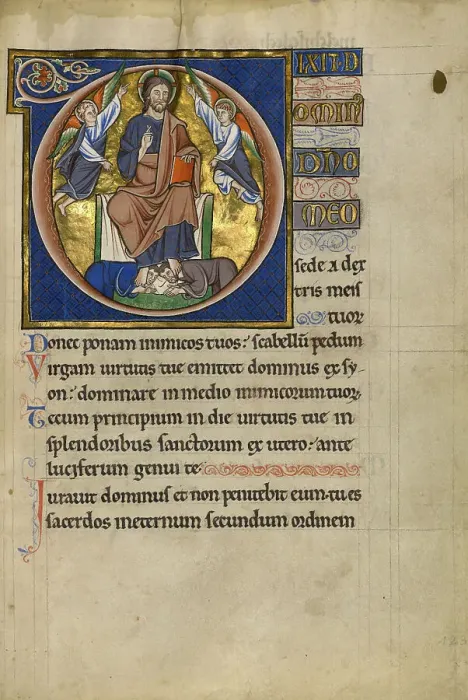 DIXIT D
OMIN
DNO
MEO
sede a dex
tris meis
Donec ponam inimicos tuos: scabellū pedum
Virgam uirtutis tue emittet dominus ex sy-
on: dominare in medio inimicorum tuoꝝ
Tecum principium in die uirtutis tue in
splendoribus sanctorum ex utero: ante
luciferum genui te
Iurauit dominus et non penitebit eum: tu es
sacerdos in eternum secundum ordinem